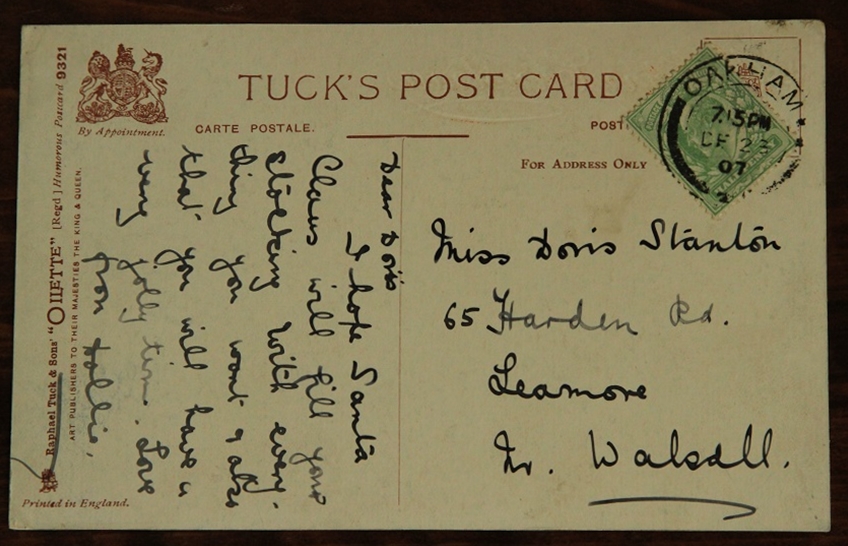 TUCK'S POST CARD
CARTE POSTALE.
POST
FOR ADDRESS ONLY
By Appointment.
Raphael Tuck & Sons' "OILETTE" [Regd] Humorous Postcard 9321
ART PUBLISHERS TO THEIR MAJESTIES THE KING & QUEEN.
Printed in England.
OAKHAM
7.15PM
DE 23
07
Dear Doris
I hope Santa
Claus will fill your
stocking with every-
thing you want & also
that you will have a
very jolly time. Love
from Hollie.
Miss Doris Stanton
65 Harden Rd.
Leamore
Nr. Walsall.